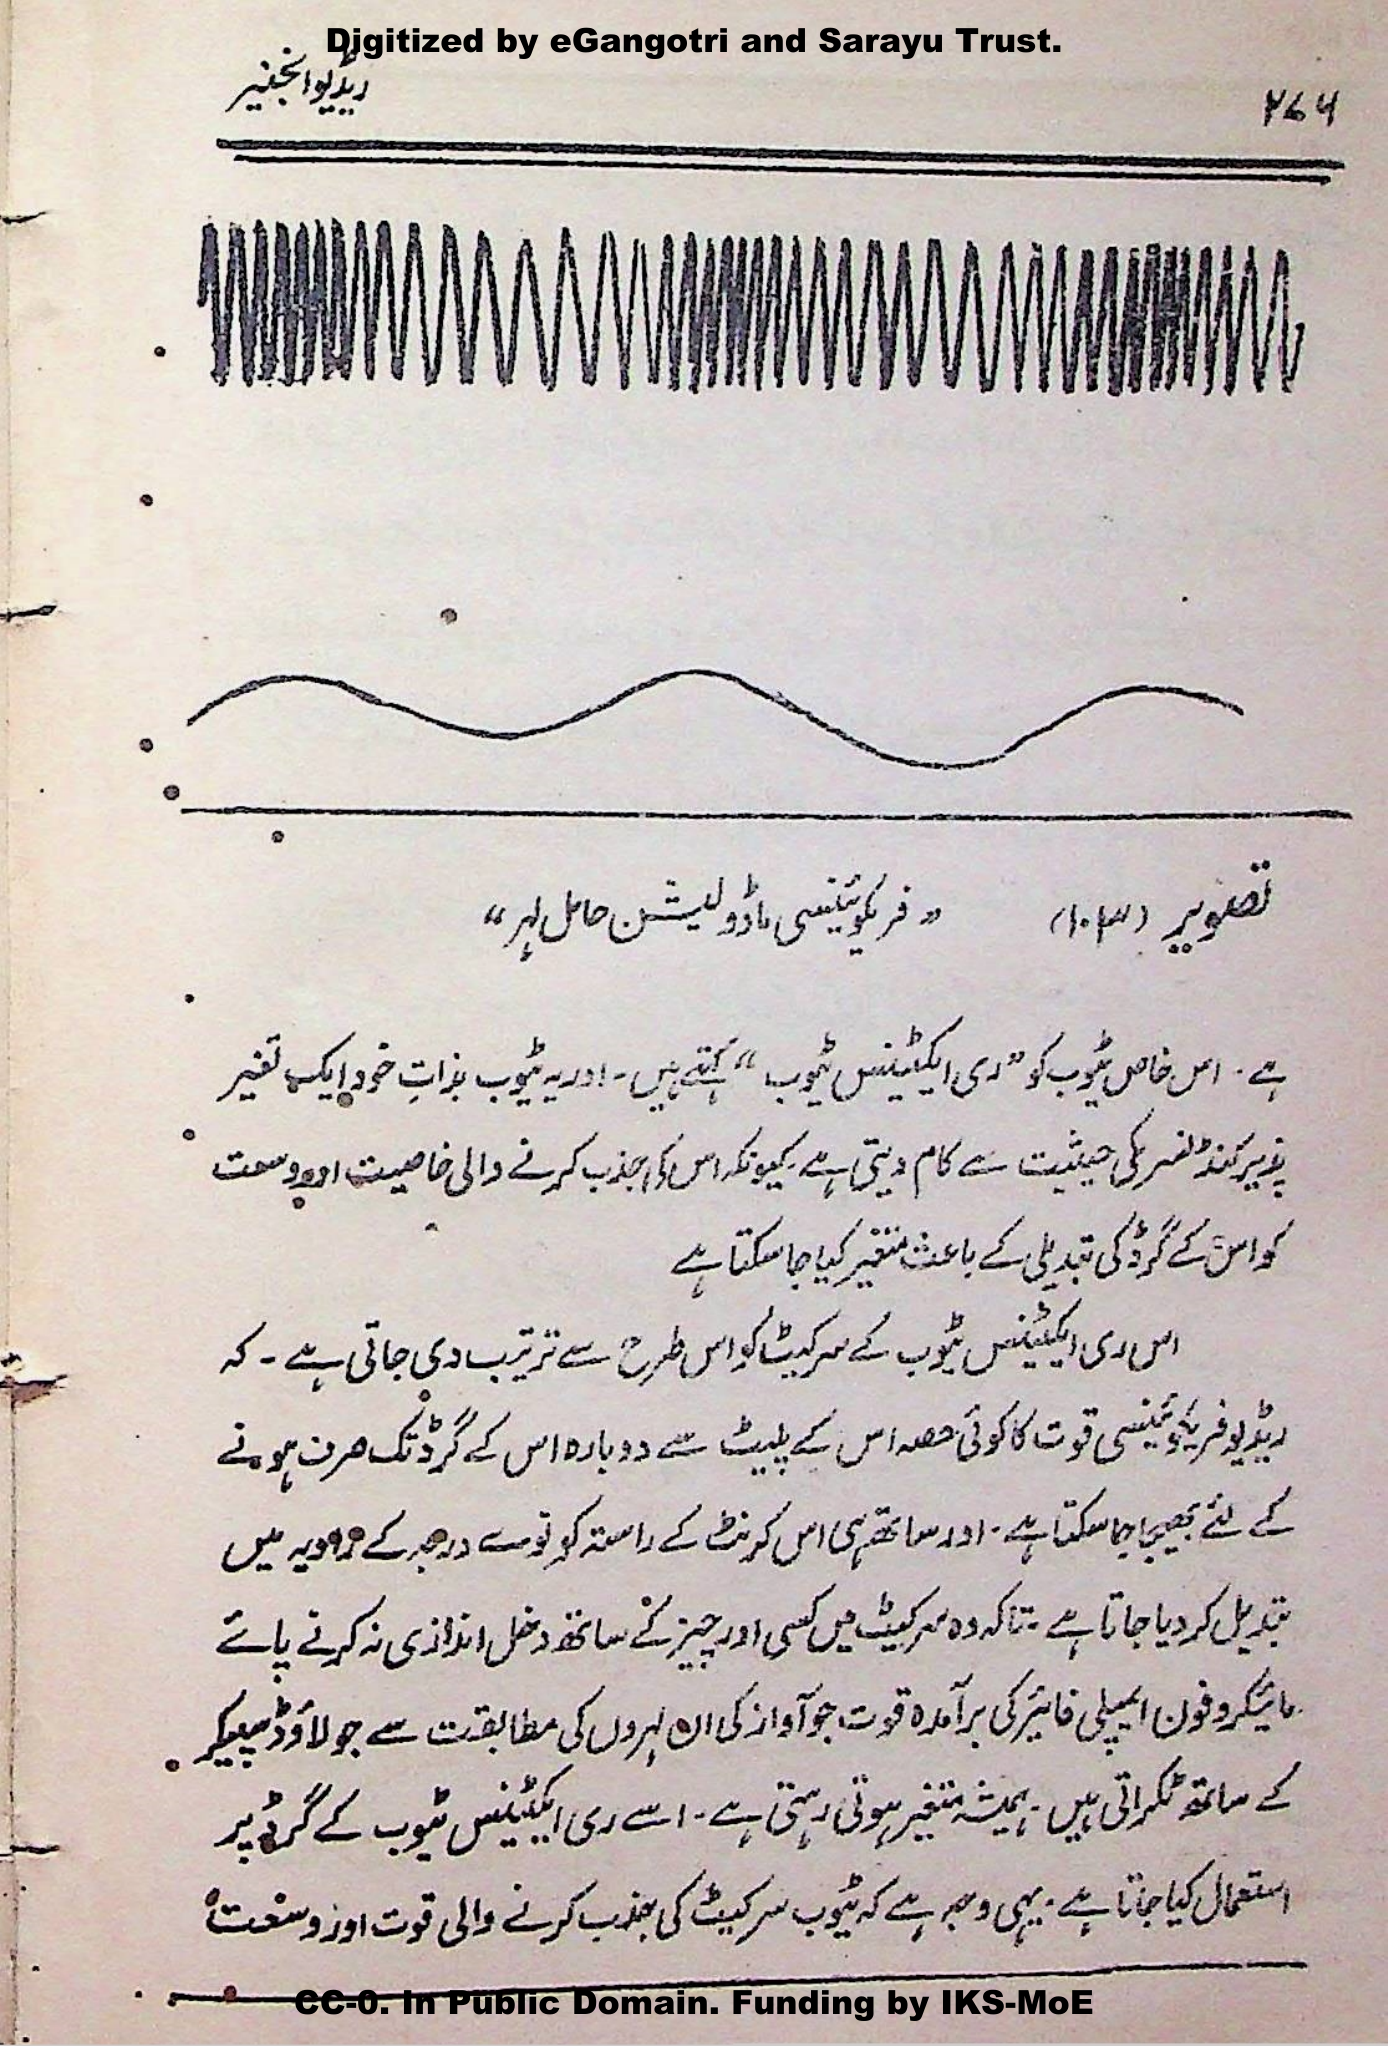 Digitized by eGangotri and Sarayu Trust.
۲۷۶ ریڈیو انجنیر
تصویر (۱۰۳) ”فریکوئینسی ماڈولیشن حامل لہر“
ہے۔ اس خاص ٹیوب کو ”ری ایکٹینس ٹیوب“ کہتے ہیں۔ اور یہ ٹیوب بذاتِ خود ایک تغیر
پذیر کنڈنسر کی حیثیت سے کام دیتی ہے۔ کیونکہ اس کی جذب کرنے والی خاصیت اور وسعت
کو اس کے گرڈ کی تبدیلی کے باعث متغیر کیا جا سکتا ہے
اس ری ایکٹینس ٹیوب کے سرکیٹ کو اس طرح سے ترتیب دی جاتی ہے۔ کہ
ریڈیو فریکوئینسی قوت کا کوئی حصہ اس کے پلیٹ سے دوبارہ اس کے گرڈ تک صرف ہونے
کے لئے بھیجا جا سکتا ہے۔ اور ساتھ ہی اس کرنٹ کے راستہ کو نوے درجہ کے زاویہ میں
تبدیل کر دیا جاتا ہے۔ تاکہ وہ سرکیٹ میں کسی اور چیز کے ساتھ دخل اندازی نہ کرنے پائے
مائیکروفون ایمپلی فائیر کی برآمدہ قوت جو آواز کی ان لہروں کی مطابقت سے جو لاؤڈ سپیکر
کے ساتھ ٹکراتی ہیں۔ ہمیشہ متغیر ہوتی رہتی ہے۔ اسے ری ایکٹینس ٹیوب کے گرڈ پر
استعمال کیا جاتا ہے۔ یہی وجہ ہے کہ ٹیوب سرکیٹ کی جذب کرنے والی قوت اور وسعت
CC-0. In Public Domain. Funding by IKS-MoE